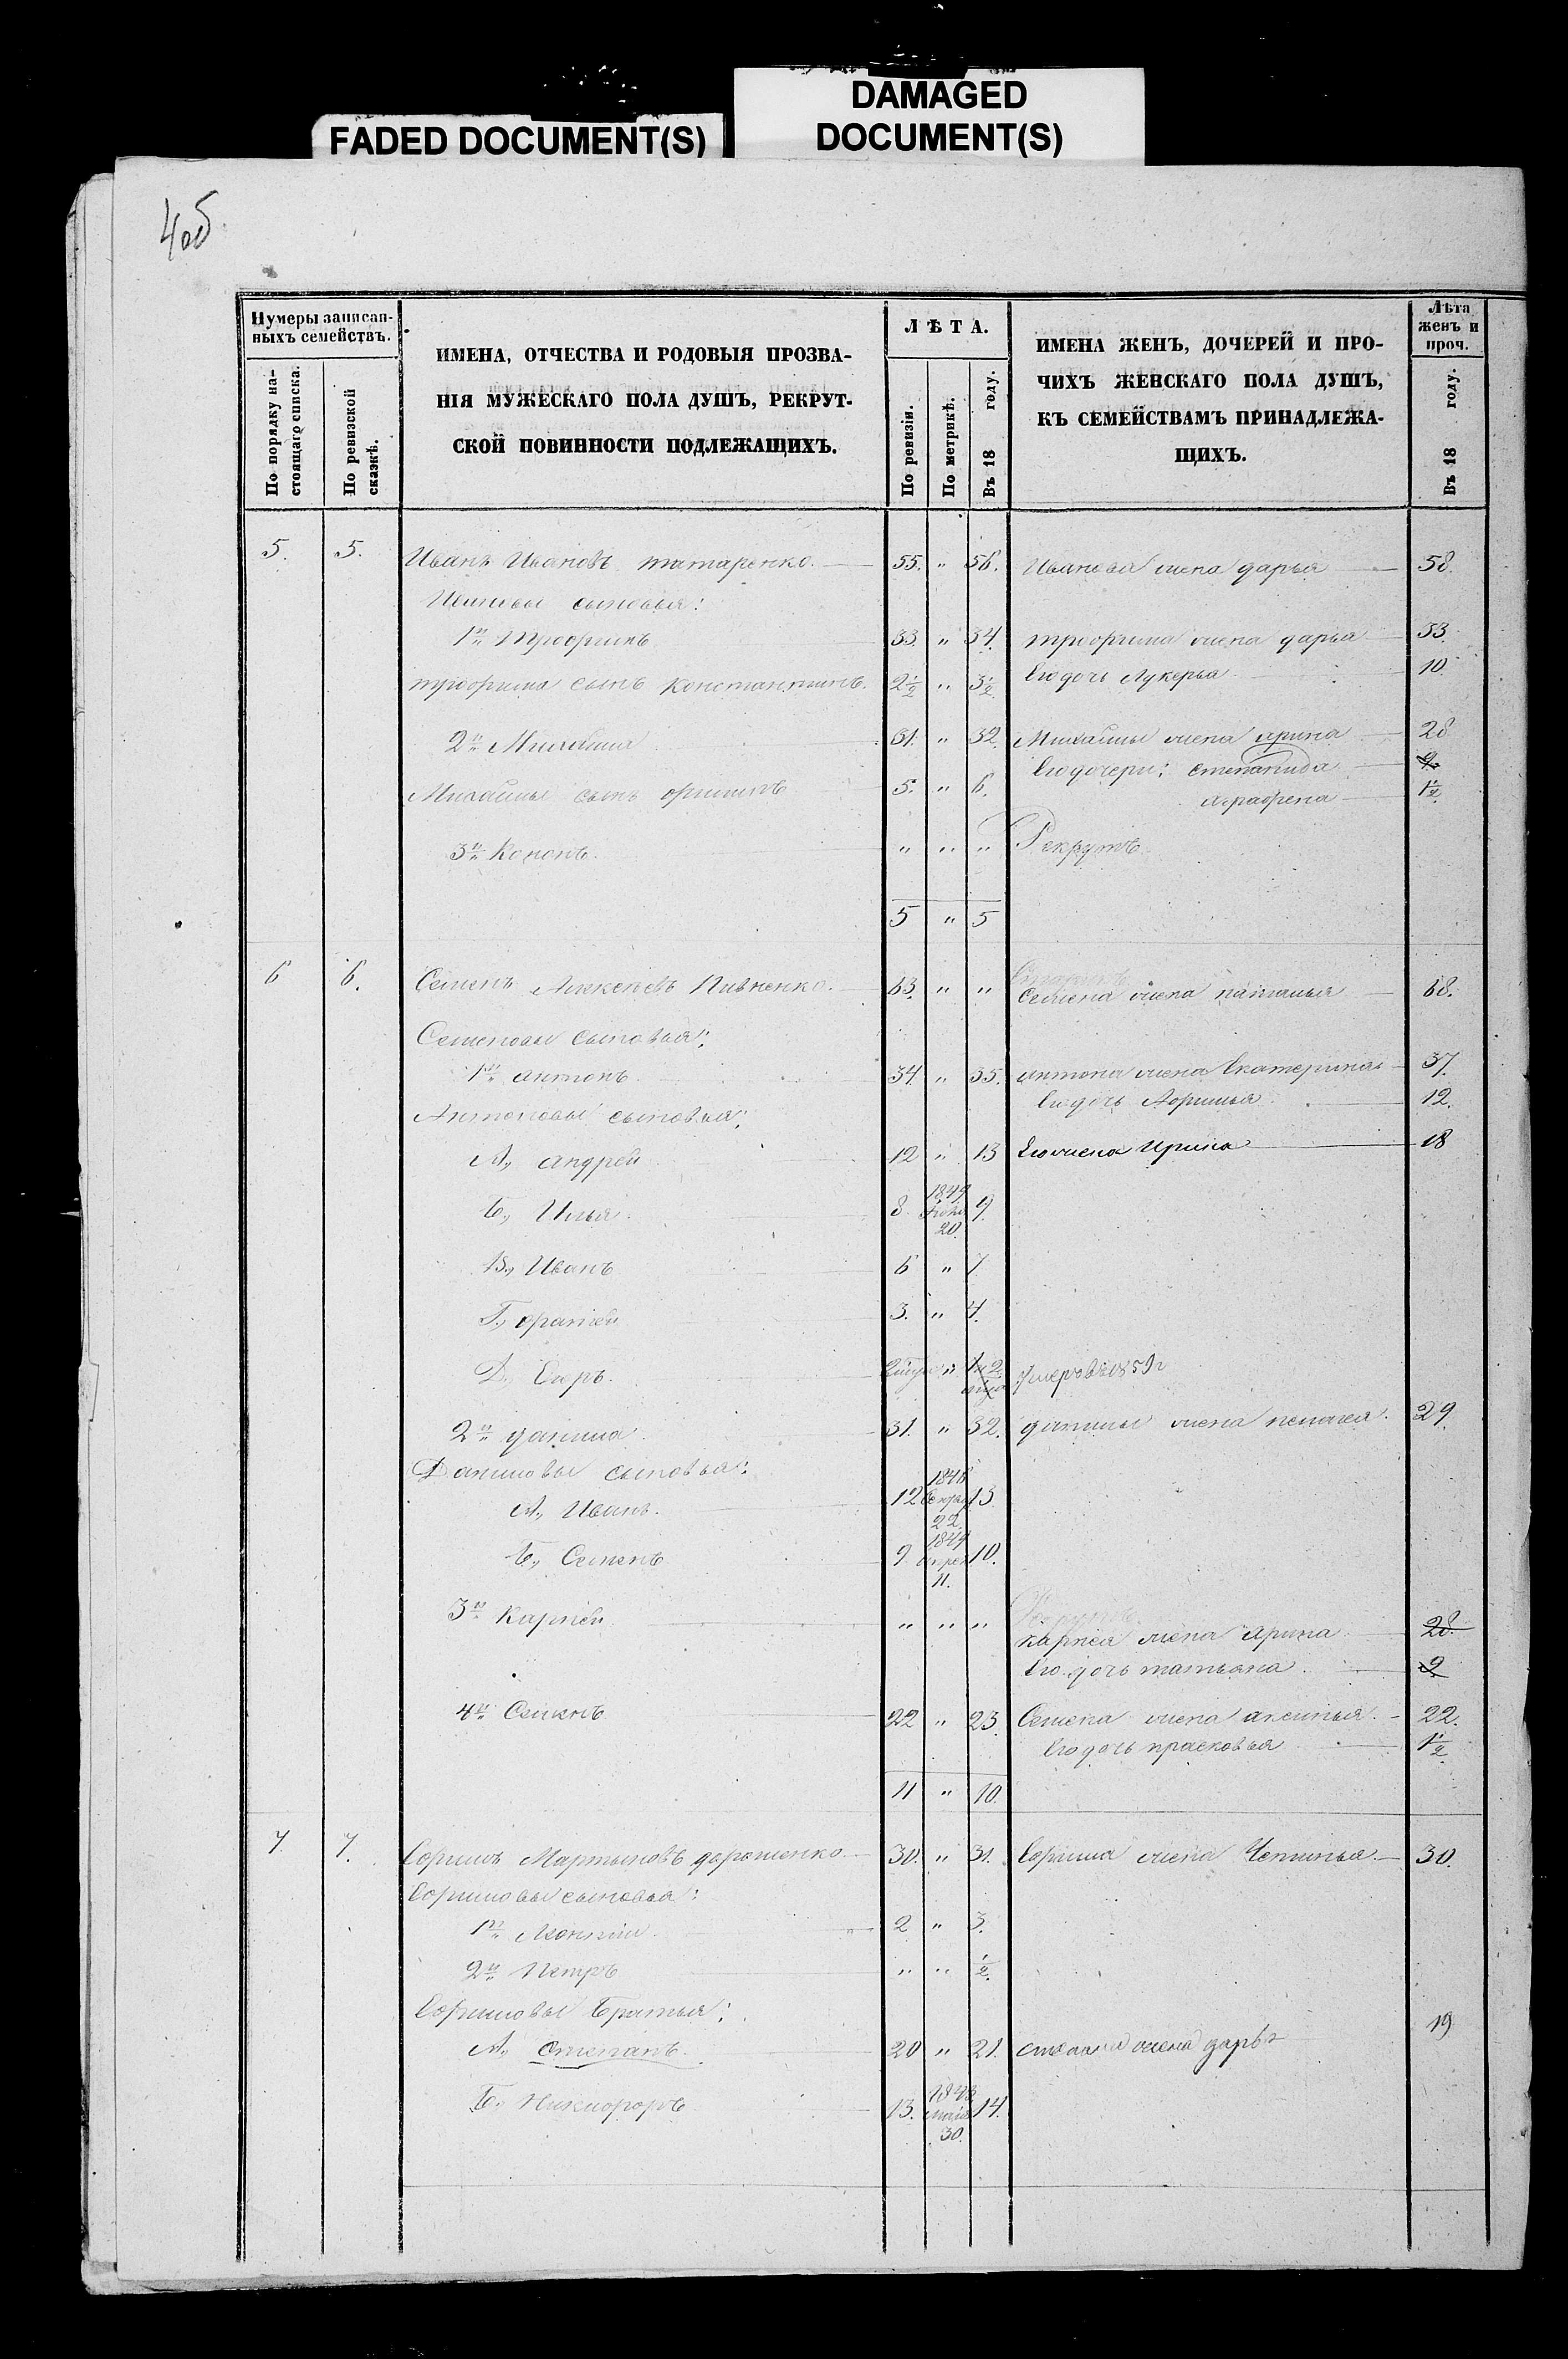 FADED DOCUMENT(S)
DAMAGED
DOCUMENT(S)
4об
Нумеры записан-
ныхъ семействъ.
По порядку на-
стоящаго списка.
По ревизской
сказкѣ.
ИМЕНА, ОТЧЕСТВА И РОДОВЫЯ ПРОЗВА-
НІЯ МУЖЕСКАГО ПОЛА ДУШЪ, РЕКРУТ-
СКОЙ ПОВИННОСТИ ПОДЛЕЖАЩИХЪ.
ЛѢТА.
По ревизіи.
По метрикѣ.
Въ 18 году.
ИМЕНА ЖЕНЪ, ДОЧЕРЕЙ И ПРО-
ЧИХЪ ЖЕНСКАГО ПОЛА ДУШЪ,
КЪ СЕМЕЙСТВАМЪ ПРИНАДЛЕЖА-
ЩИХЪ.
Лѣта
женъ и
проч.
Въ 18 году.
5. 5. Иванъ Ивановъ татаренко. 55. " 56. Иванова жена дарья 58.
Ивановы сыновья:
1й Трофимъ 33. " 34. трофима жена дарья 33.
трофима сынъ Константинъ. 2½ " 3½ Его дочь Лукерья 10.
2й Михайла 31. " 32. Михайлы жена арина 28
Его дочери: степанида 9.
Михайлы сынъ 5. " 6. аграфена 1½
3й Кононъ. " " " Рекрутъ
5 " 5
6 6. Семенъ Алексѣевъ Пивненко. 63. " " Семена жена наталья 68.
Семеновы сыновья:
1й антонъ. 34. " 35. антона жена Екатерина 37.
Антоновы сыновья: Его дочь 12.
А., андрей 12 " 13 Его жена Ирина 18
Б., Илья. 8. 1849 20. 9.
В., Иванъ 6 " 7
Г., 3. " 4.
Д., " Умеръ въ 1859 г
2й данила. 31. " 32. данилы жена пелагея. 29.
Даниловы сыновья:
А., Иванъ. 12 1846 22. 13.
Б., Семенъ 9 1849 апрел 11. 10.
3й Карпей " " "
карпея жена арина 28.
Его дочь татьяна. 9
4й Семенъ 22 " 23. Семена жена аксинья. 22.
Его дочь прасковья 1½
11 " 10.
7. 7. Ефимъ Мартыновъ дорошенко. 30. " 31. Ефима жена 30.
Ефимовы сыновья:
1й 2 " 3.
2й Петръ " " ½
Ефимовы братья:
А., степанъ. 20 " 21. степана жена дарья 19
Б., Никифоръ 13. 1843 маия 30. 14.